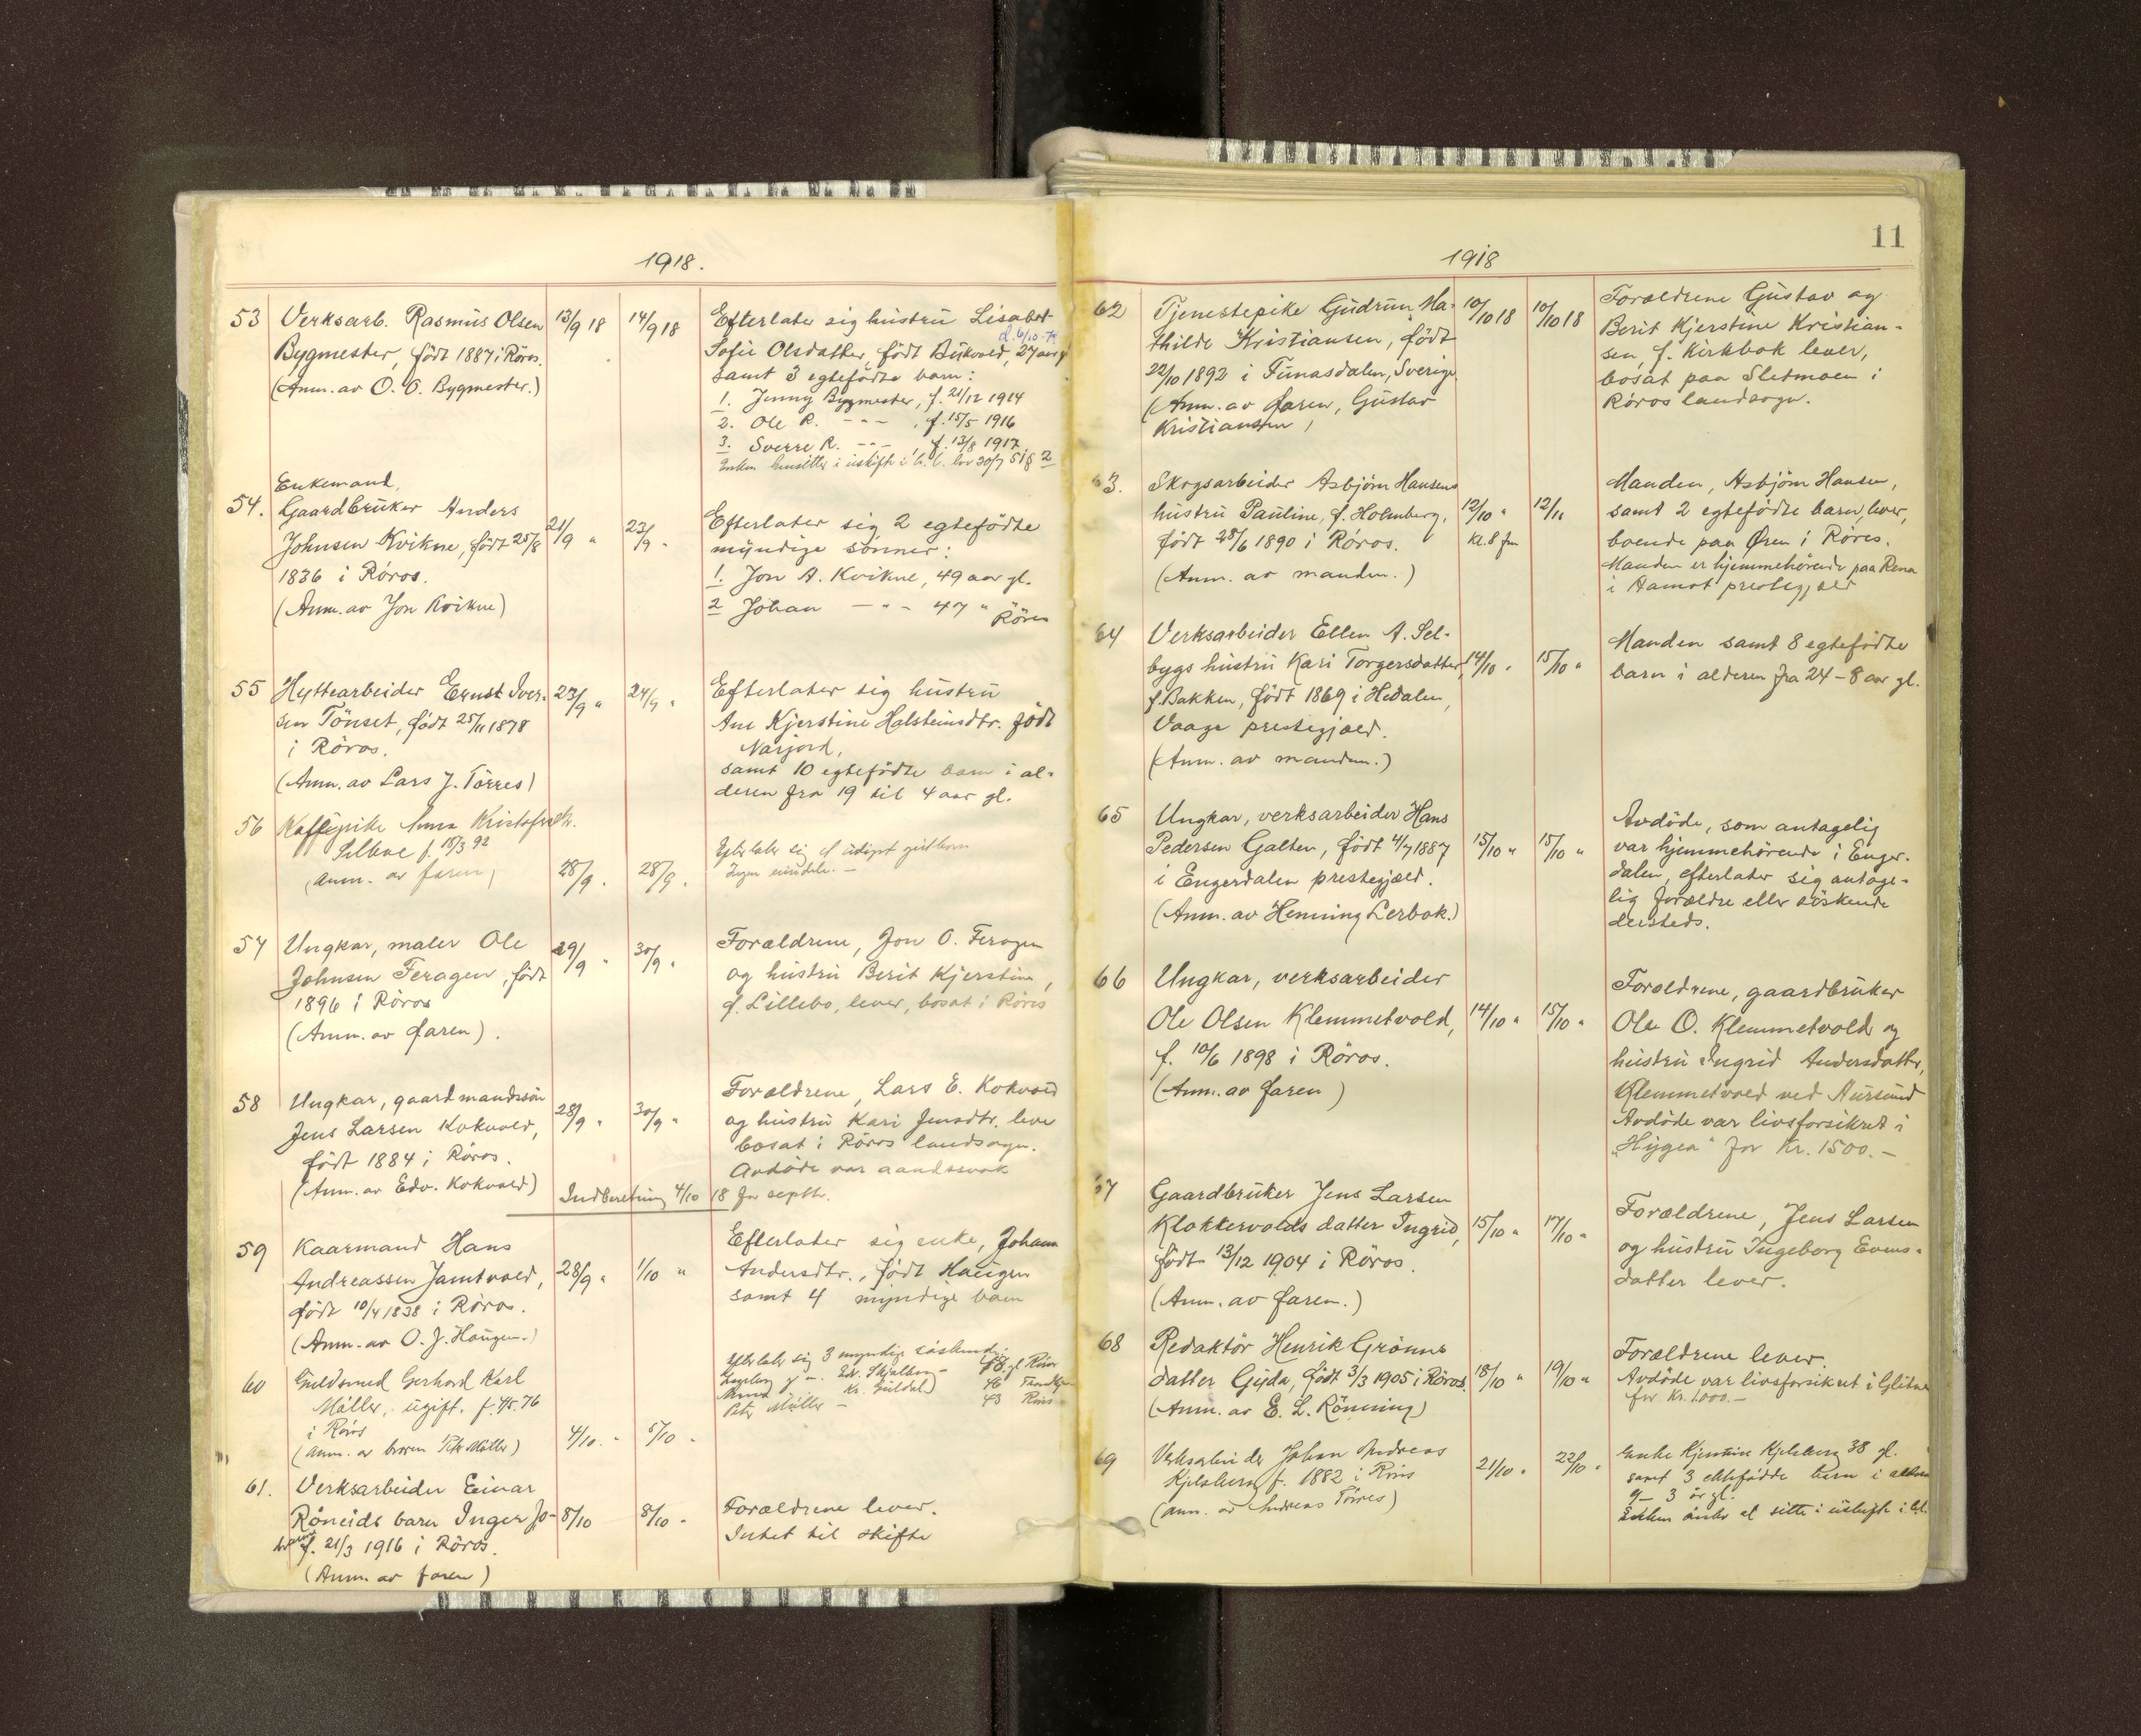 1918.
53 Verksarb. Rasmus Olsen 13/9 18 14/9 18 Efterlater sig hustru Lisabet
d. 6/10-74
Bygmester, født 1887 i Röros. Sofie Olsdatter, født Bukvold, 27 aar gl
(Anm. av O. O. Bygmester.) samt 3 egtefödte barn:
1. Jenny Bygmester, f. 21/12 1914
2. Ole R. - " - , f. 15/5 1916
3. Sverre R. - " - f. 13/8 1917
Enken hensitter i uskifte i h. t. lov 30/7 51 § 2
Enkemand,
54. Gaardbruker Anders 21/9 " 23/9 " Efterlater sig 2 egtefödte
Johnsen Kvikne, født 25/8 myndige sönner:
1836 i Röros. 1. Jon A. Kvikne, 49 aar gl.
(Anm. av Jon Kvikne) 2 Johan - " - 47 " Röros
55 Hyttearbeider Ernst Iver- 23/9 " 24/9 " Efterlater sig hustru
sen Tönset, født 25/11 1878 Ane Kjerstine Halsteinsdtr. født
i Röros. Narjord,
(Anm. av Lars J. Törres) samt 10 egtefödte barn i al-
deren fra 19 til 4 aar gl.
56 Kaffepike Anna Kristofersdtr.
Selboe f. 18/3 92 Efterlater sig et udöpt pikebarn
(Anm. av faren) 28/9. 28/9. Ingen eiendele. -
57 Ungkar, maler Ole 29/9 " 30/9 " Forældrene, Jon O. Feragen
Johnsen Feragen, født og hustru Berit Kjerstine,
1896 i Röros f. Lillebo, lever, bosat i Röros
(Anm. av faren).
58 Ungkar, gaardmandssön 28/9 " 30/9 " Forældrene, Lars E. Kokvold
Jens Larsen Kokvold, og hustru Kari Jensdtr. leve
født 1884 i Röros. bosat i Röros landsogn.
(Anm. av Edv. Kokvold) Avdöde var aandssvak
Indberetning 4/10 18 for septbr.
59 Kaarmand Hans 28/9 " 1/10 " Efterlater sig enke, Johanna
Andreassen Jamtvold, Andersdtr., født Haugen
født 10/4 1838 i Röros. samt 4 myndige barn
(Anm. av O. J. Haugen.)
60 Guldsmed Gerhard Karl Efterlater sig 3 myndige söskende:
Möller, ugift. f. 4/5.76 Ingeborg g. m. Edv. Skjølberg - 48 gl. Röros
i Röros Kr. Guldal) 46 Trondhjem
(Anm. av broren Petr Möller) 4/10 " 5/10 " Petr Möller - 43 Röros
61. Verksarbeider Einar
Röneids barn Inger Jo- 8/10 8/10 " Forældrene lever.
f. 21/3 1916 i Röros. Intet til skifte
(Anm. av faren)
11
1918
62 Tjenestepike Gudrun Ma- 10/10 18 10/10 18 Forældrene Gustav og
thilde Kristiansen, født Berit Kjerstine Kristian-
22/10 1892 i Funasdalen, Sverige. sen, f. Kirkbak lever,
(Anm. av faren, Gustav bosat paa Sletmoen i
Kristiansen) Röros landsogn.
63. Skogsarbeider Asbjörn Hansens Manden, Asbjörn Hansen,
hustru Pauline, f. Holmberg, 12/10 " 12/11 samt 2 egtefödte barn, lever,
født 28/6 1890 i Röros. kl. 8 fm boende paa Øren i Röros.
(Anm. av manden.) Manden er hjemmehörende paa Rena
i Aamot prestegjæld
64 Verksarbeider Ellen A. Sel- Manden samt 8 egtefödte
bygs hustru Kari Torgersdatter, 14/10 " 15/10 " barn i alderen fra 24-8 aar gl.
f. Bakken, født 1869 i Hedalen,
Vaage prestegjæld.
(Anm. av manden.)
65 Ungkar, verksarbeider Hans Avdöde, som antagelig
Pedersen Galten, født 4/7 1887 15/10 " 15/10 " var hjemmehörende i Enger-
i Engerdalen prestegjæld. dalen, efterlater sig antage-
(Anm. av Henning Lerbak.) lig forældre eller söskende
dersteds.
66 Ungkar, verksarbeider Forældrene, gaardbruker
Ole Olsen Klemmetvold, 14/10 " 15/10 " Ole O. Klemmetvold og
f. 10/6 1898 i Röros. hustru Ingrid Andersdatter,
(Anm. av faren) Klemmetvold ved Aursund
Avdöde var livsforsikret i
"Hygea" for Kr. 1500.-
67 Gaardbruker Jens Larsen Forældrene, Jens Larsen
Klokkervolds datter Ingrid, 15/10 " 17/10 " og hustru Ingeborg Evens-
født 13/12 1904 i Röros. datter lever.
(Anm. av faren.)
68 Redaktör Henrik Grönns Forældrene lever.
datter Gyda, født 3/3 1905 i Röros. 18/10 " 19/10 " Avdöde var livsforsikret i Glitne
(Anm. av E. L. Rönning) for Kr. 1000.-
69 Verksarbeider Johan Andreas 21/10 " 22/10 " Enke Kjerstine Kjelsberg 38 gl.
Kjelsberg f. 1882 i Röros samt 3 ektefödde barn i alderen
(Anm. av Andreas Törres) 9 - 3 år gl.
Enken önsker at sitte i uskifte i h.t.